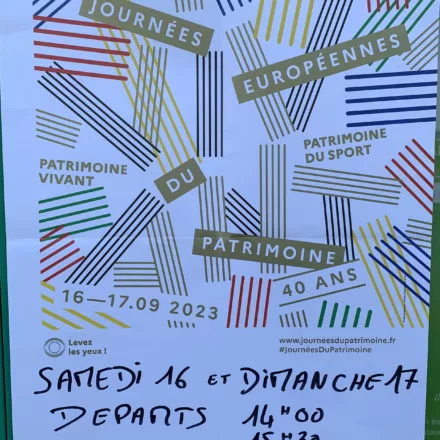 JOURNÉES
EUROPÉENNES
DU
PATRIMOINE
PATRIMOINE
VIVANT
PATRIMOINE
DU SPORT
40 ANS
16—17.09 2023
Levez
les yeux !
www.journeesdupatrimoine.fr
#JournéesDuPatrimoine
SAMEDI 16 ET DIMANCHE 17
DEPARTS 14H00